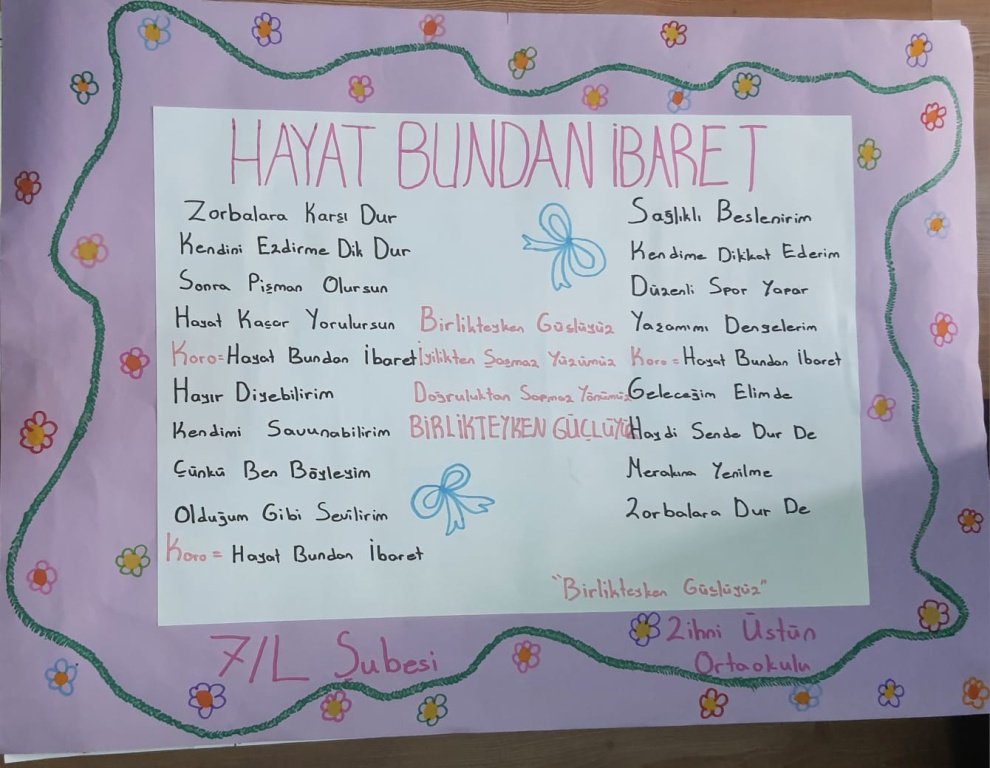 HAYAT BUNDAN İBARET
Zorbalara Karşı Dur
Kendini Ezdirme Dik Dur
Sonra Pişman Olursun
Hayat Kaçar Yorulursun
Koro=Hayat Bundan İbaret
Hayır Diyebilirim
Kendimi Savunabilirim
Çünkü Ben Böyleyim
Olduğum Gibi Sevilirim
Koro= Hayat Bundan İbaret
Birlikteyken Güçlüyüz
İyilikten Şaşmaz Yüzümüz
Doğruluktan Sapmaz Yönümüz
BİRLİKTEYKEN GÜÇLÜYÜZ
Sağlıklı Beslenirim
Kendime Dikkat Ederim
Düzenli Spor Yapar
Yaşamımı Dengelerim
Koro = Hayat Bundan İbaret
Geleceğim Elimde
Haydi Sende Dur De
Merakına Yenilme
Zorbalara Dur De
"Birlikteyken Güçlüyüz"
7/L Şubesi
Zihni Üstün
Ortaokulu